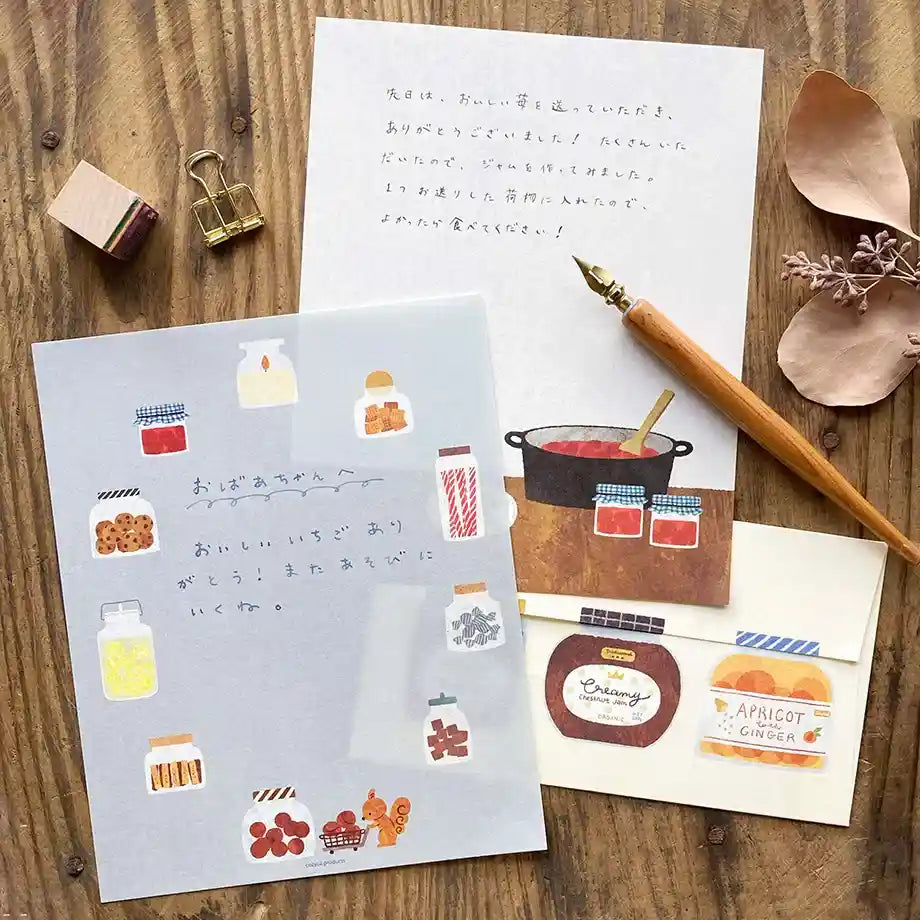 先日は、おいしい苺を送っていただき、
ありがとうございました! たくさんいた
だいたので、ジャムを作ってみました。
1つお送りした荷物に入れたので、
よかったら食べてください!
おばあちゃんへ
おいしいいちごあり
がとう!またあそびに
いくね。
Creamy
CHESTNUT JAM
ORGANIC
APRICOT
with
GINGER